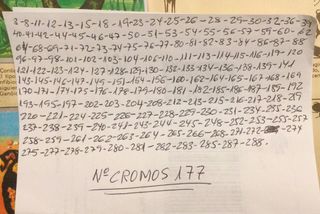 2-8-11-12-13-15-18-19-23-24-25-26-28-29-30-32-36-39
40-41-42-44-45-46-47-50-51-53-54-55-56-57-59-60-62
64-68-69-71-72-73-74-75-76-77-80-81-82-83-84-86-87-88
96-97-98-101-102-103-104-106-110-111-113-114-115-116-119-120
121-122-123-124-127-128-129-130-132-133-134-136-138-139-141
143-145-146-147-149-151-154-156-160-162-164-165-167-168-169
170-171-174-175-176-178-179-180-181-182-185-186-187-189-192
193-195-197-202-203-204-208-212-213-215-216-217-218-219
220-221-224-225-226-227-228-229-230-231-234-235-236
237-238-239-240-241-243-244-245-248-252-253-255-257
258-259-261-262-263-264-265-266-268-271-272-274
275-277-278-279-280-281-282-283-285-287-288.
Nº CROMOS 177